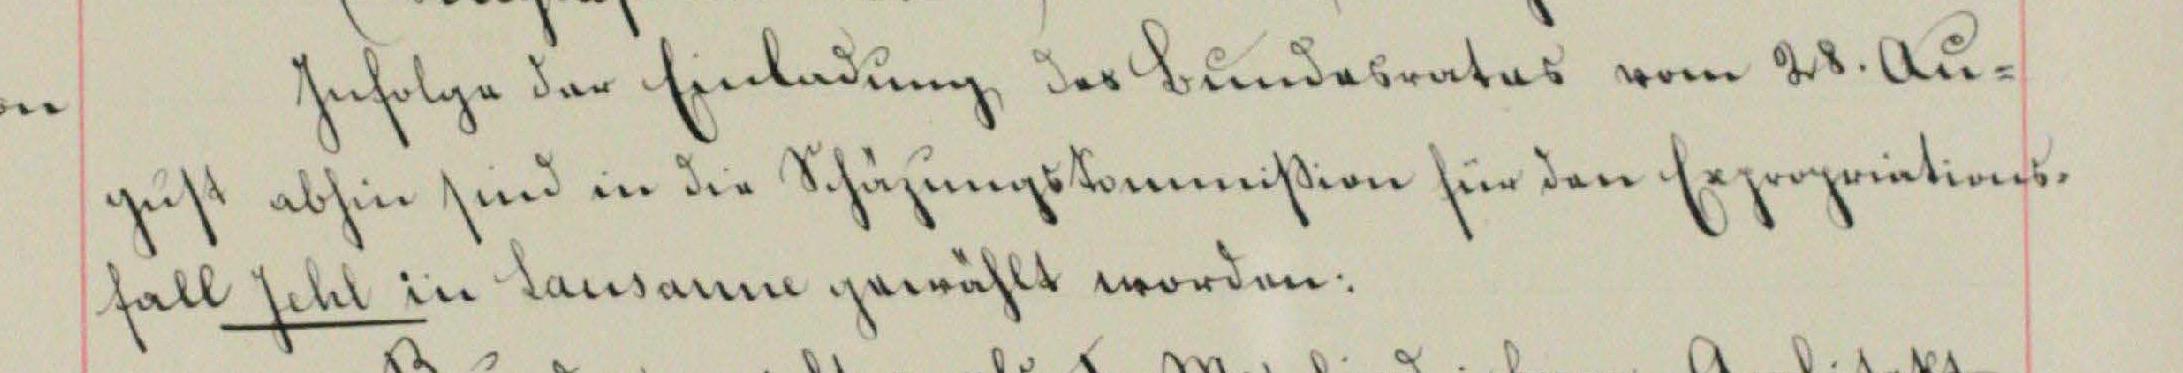 Infolge der Einladung des Bundesrates vom 28. Au-
gust abhin sind in die Schäzungskommission für den Expropriations-
fall Jehl in Lausanne gewählt worden: